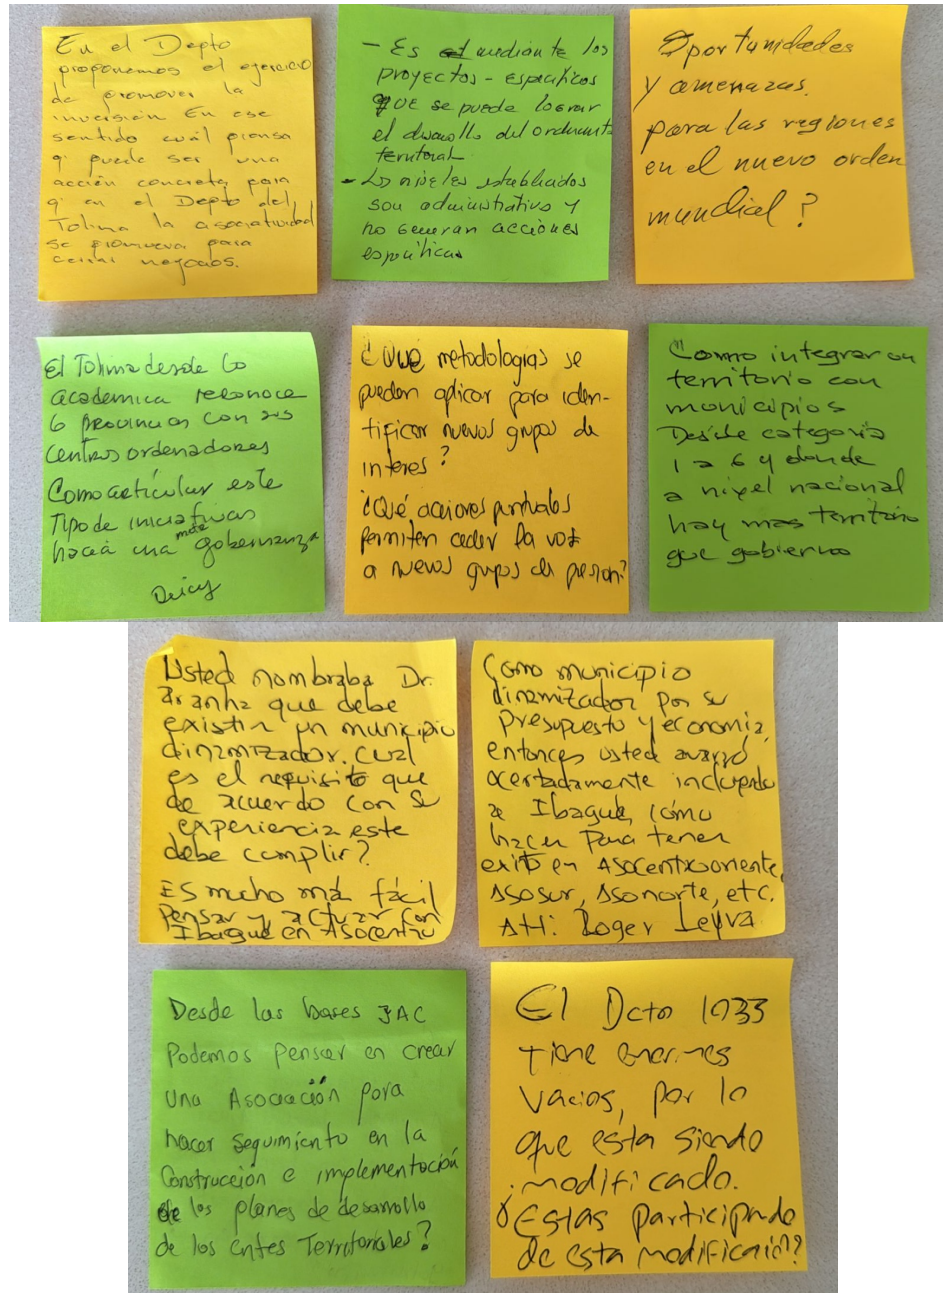 En el Depto
proponemos el ejercicio
de promover la
inversión En ese
sentido cuál piensa
q' puede ser una
acción concreta para
q' en el Depto del
Tolima la asociatividad
se promueva para
cerrar negocios.
- Es mediante los
proyectos - especificos
que se puede lograr
el desarrollo del ordenamto
territorial
- Los niveles establecidos
son administrativo y
no generan acciones
especificas
Oportunidades
y amenazas.
para las regiones
en el nuevo orden
mundial?
El Tolima desde lo
academica reconoce
6 provincias con sus
centros ordenadores
Como articular este
Tipo de iniciativas
hacia una mas gobernanza
Deicy
¿Que metodologias se
pueden aplicar para iden-
tificar nuevos grupos de
interes?
¿Qué acciones puntuales
permiten ceder la voz
a nuevos grupos de presion?
Como integrar un
territorio con
municipios
Desde categoria
1 a 6 y donde
a nivel nacional
hay mas territorio
que gobierno
Usted nombraba Dr.
Aranha que debe
existir un municipio
dinamizador. Cual
es el requisito que
de acuerdo con su
experiencia este
debe cumplir?
Es mucho más fácil
pensar y actuar con
Ibague en Asocentro
Como municipio
dinamizador por su
presupuesto y economía,
entonces usted avanzó
acertadamente incluyendo
a Ibague, cómo
hacer para tener
exito en Asocentrooriente,
Asosur, Asonorte, etc.
Att: Roger Leyva
Desde las bases JAC
Podemos pensar en crear
una Asociación para
hacer seguimiento en la
Construcción e implementación
de los planes de desarrollo
de los entes Territoriales?
El Dcto 1033
tiene enormes
vacios, por lo
que esta siendo
modificado.
¿Estas participando
de esta modificación?